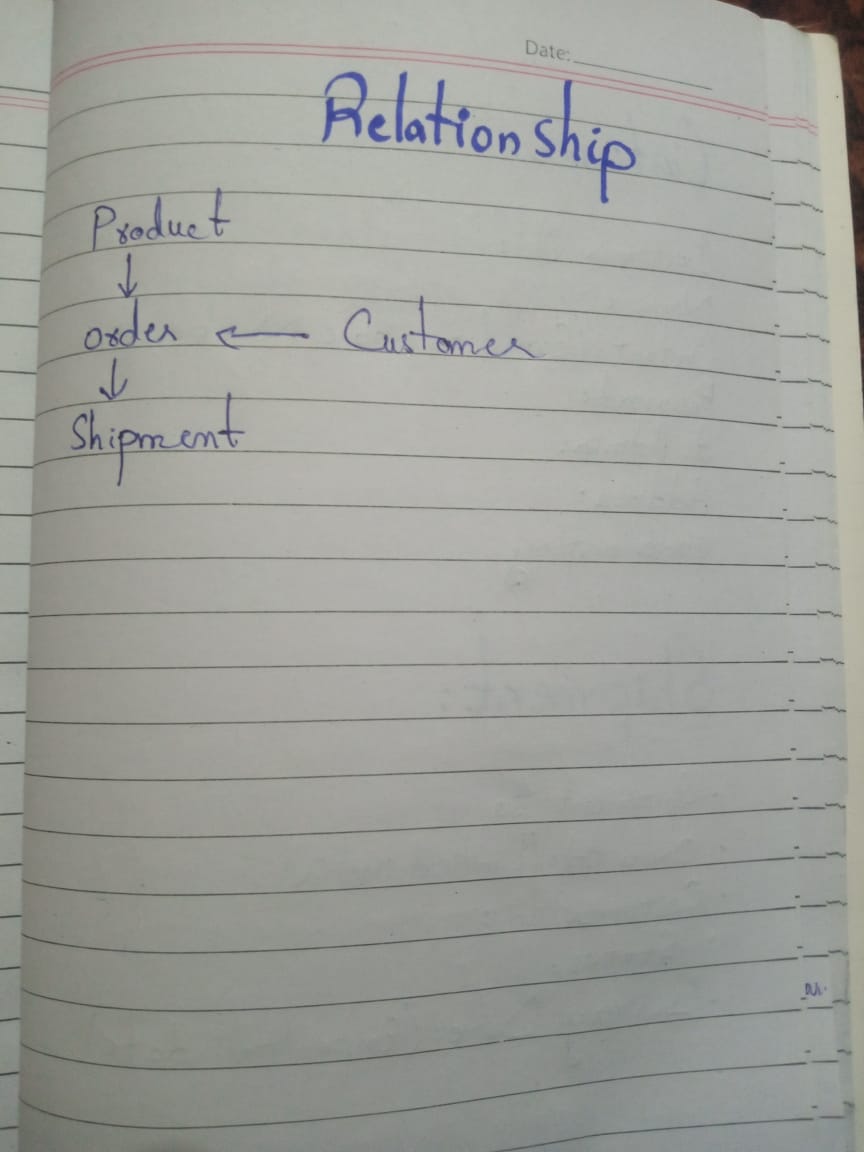 Date:
Relationship
Product
↓
order ← Customer
↓
Shipment